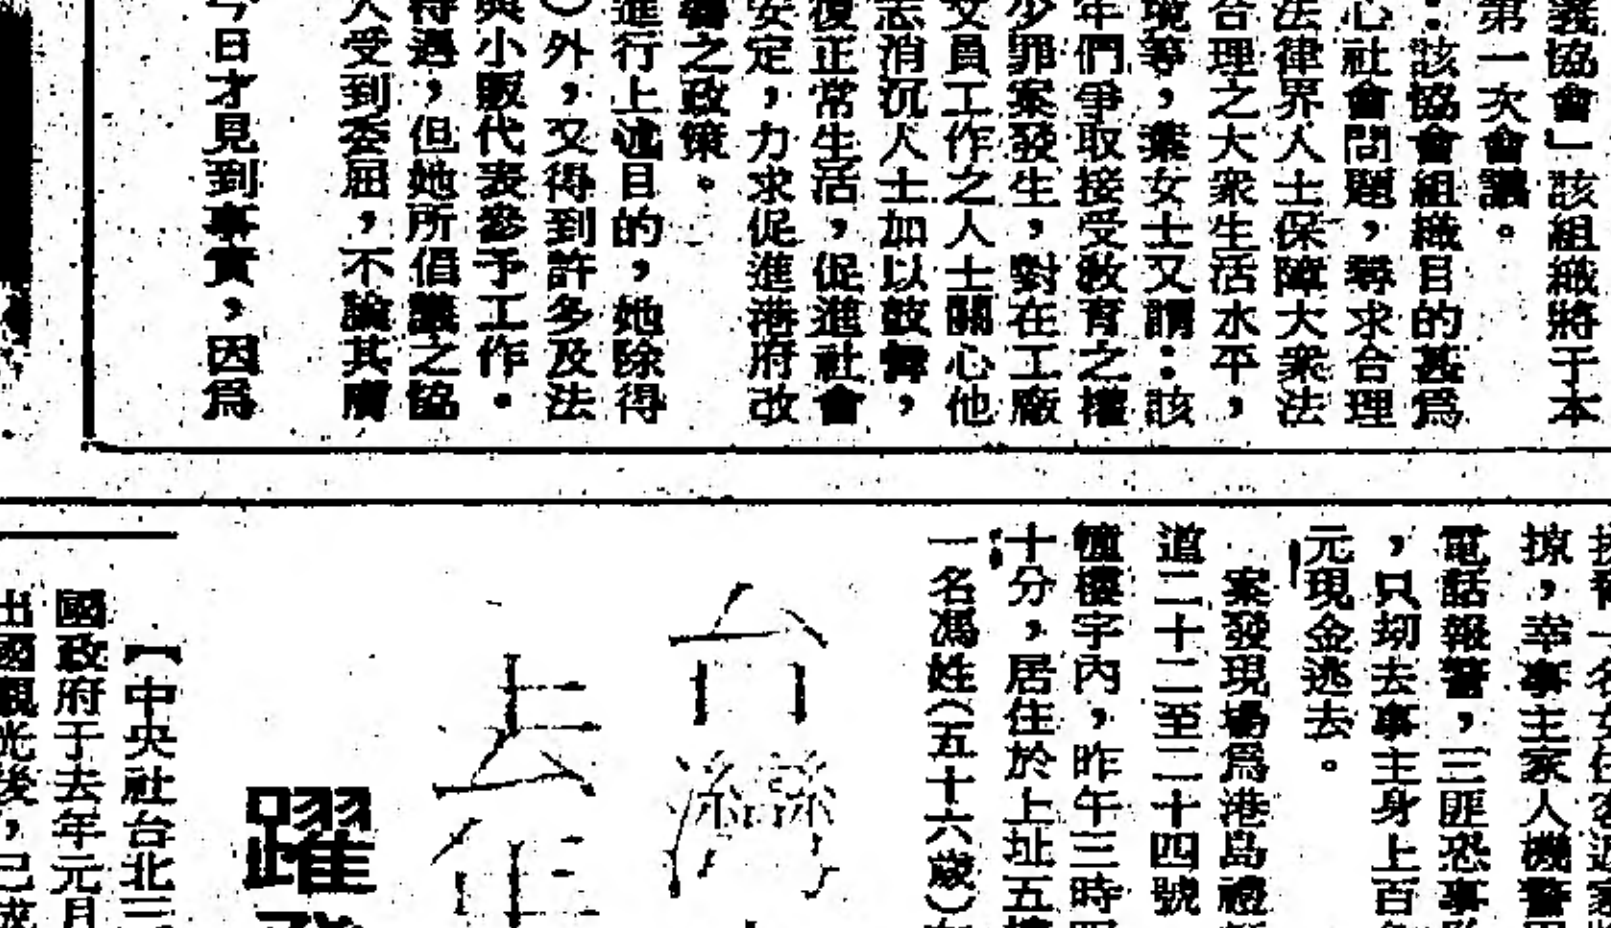 義協會」該組織將于本
第一次會議。
：該協會組織目的甚爲
心社會問題，尋求合理
法律界人士保障大衆法
合理之大衆生活水平，
境等，葉女士又謂：該
年們爭取接受教育之權
少罪案發生，對在工廠
文員工作之人士關心他
志消沉人士加以鼓舞，
復正常生活，促進社會
安定，力求促進港府改
之政策。
進行上述目的，她除得
）外，又得到許多及法
與小販代表參予工作。
待遇，但她所倡議之協
人受到委屈，不論其膚
今日才見到事實，因爲
一名女
掠，幸事主家人機警
電話報警，三匪恐事
，只刧去事主身上百
元現金逃去。
案發現場爲港島禮
道二十二至二十四號
樓宇內，昨午三時
十分，居住於上址五樓
一名馮姓（五十六歲）
台灣
去年
躍
【中央社台北三
國政府于去年元月
出國觀光後，已